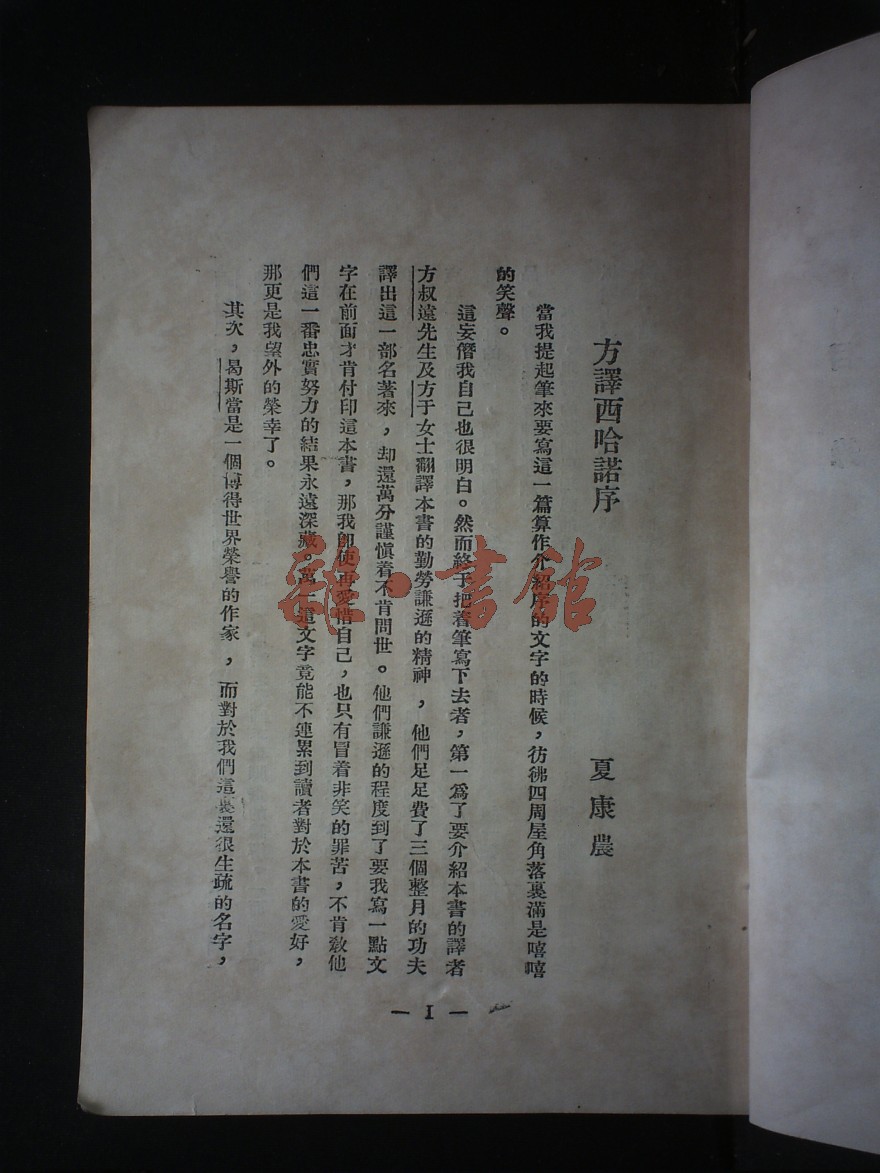 方譯西哈諾序
夏康農
當我提起筆來要寫這一篇算作介紹序的文字的時候，彷彿四周屋角落裏滿是嘻嘻
的笑聲。
這妄僭我自己也很明白。然而終于把著筆寫下去者，第一爲了要介紹本書的譯者
方叔遠先生及方于女士翻譯本書的勤勞謙遜的精神，他們足足費了三個整月的功夫
譯出這一部名著來，却還萬分謹愼着不肯問世。他們謙遜的程度到了要我寫一點文
字在前面才肯付印這本書，那我卽使再愛惜自己，也只有冒着非笑的罪苦，不肯教他
們這一番忠實努力的結果永遠深藏。萬一這文字竟能不連累到讀者對於本書的愛好，
那更是我望外的榮幸了。
其次，曷斯當是一個博得世界榮譽的作家，而對於我們這裏還很生疏的名字，
— I —
書館